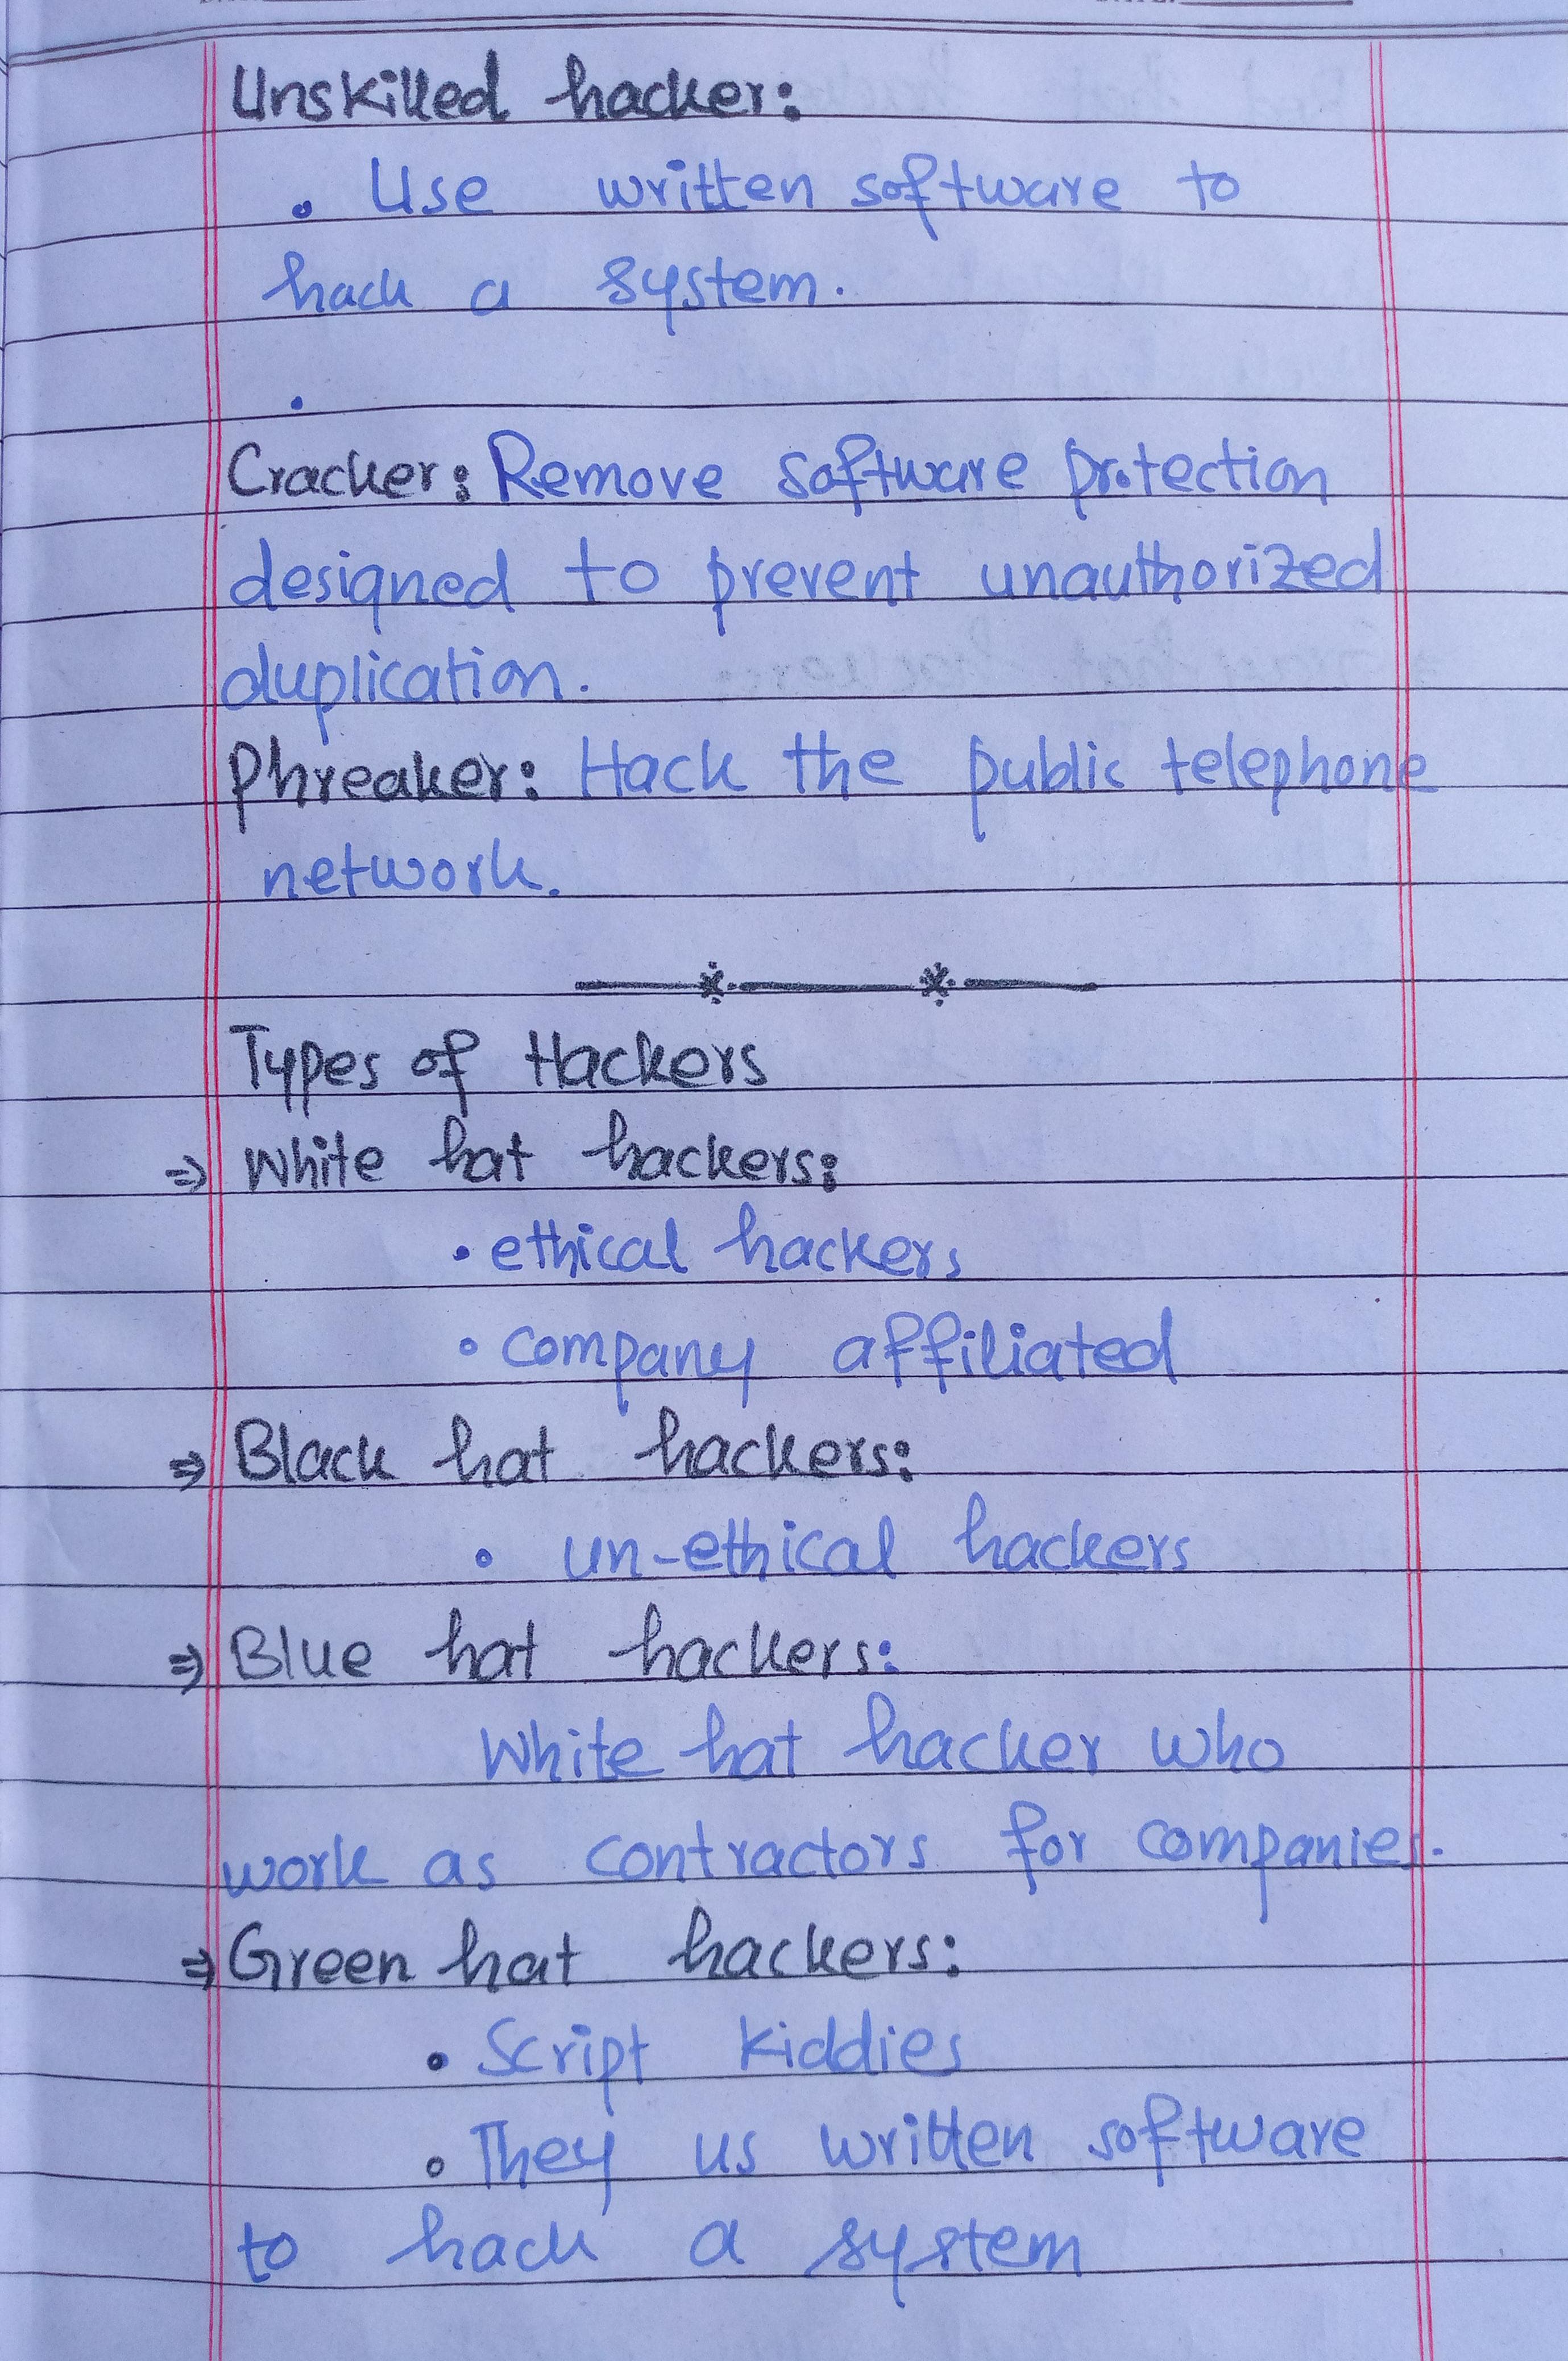 Unskilled hacker:
• Use written software to
hack a system.
•
Cracker: Remove software protection
designed to prevent unauthorized
duplication.
Phreaker: Hack the public telephone
network.
Types of Hackers
⇒ White hat hackers:
• ethical hackers
• company affiliated
⇒ Black hat hackers:
• un-ethical hackers
⇒ Blue hat hackers:
White hat hacker who
work as contractors for companies.
⇒ Green hat hackers:
• Script kiddies
• They us written software
to hack a system